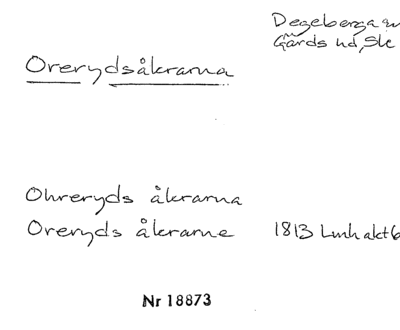 Degeberga sn
Gärds hd, Sk
Orerydsåkrarna
Ohreryds åkrarna
Oreryds åkrarne 1813 Lmh akt 6
Nr 18873